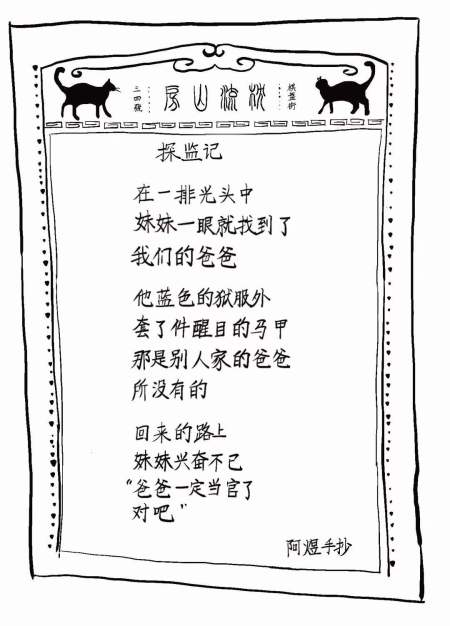 棋盤街
枕流山房
三四號
探监记
在一排光头中
妹妹一眼就找到了
我们的爸爸
他蓝色的狱服外
套了件醒目的马甲
那是别人家的爸爸
所没有的
回来的路上
妹妹兴奋不已
“爸爸一定当官了
对吧”
阿煜手抄